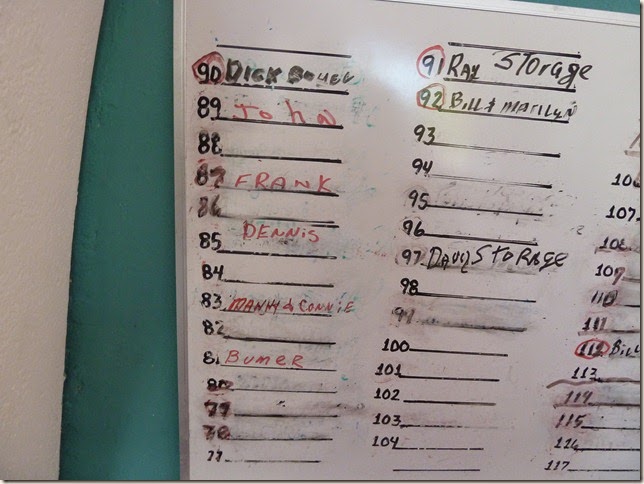 90 Dick
89 John
88
87 FRANK
86
85 DENNIS
84
83 MANNY & CONNIE
82
81 BUMER
80
79
78
77
91 RAY STORAGE
92 BILL & MARILYN
93
94
95
96
97 DAVID STORAGE
98
99
100
101
102
103
104
106
107
108
109
110
111
112 Bill
113
114
115
116
117